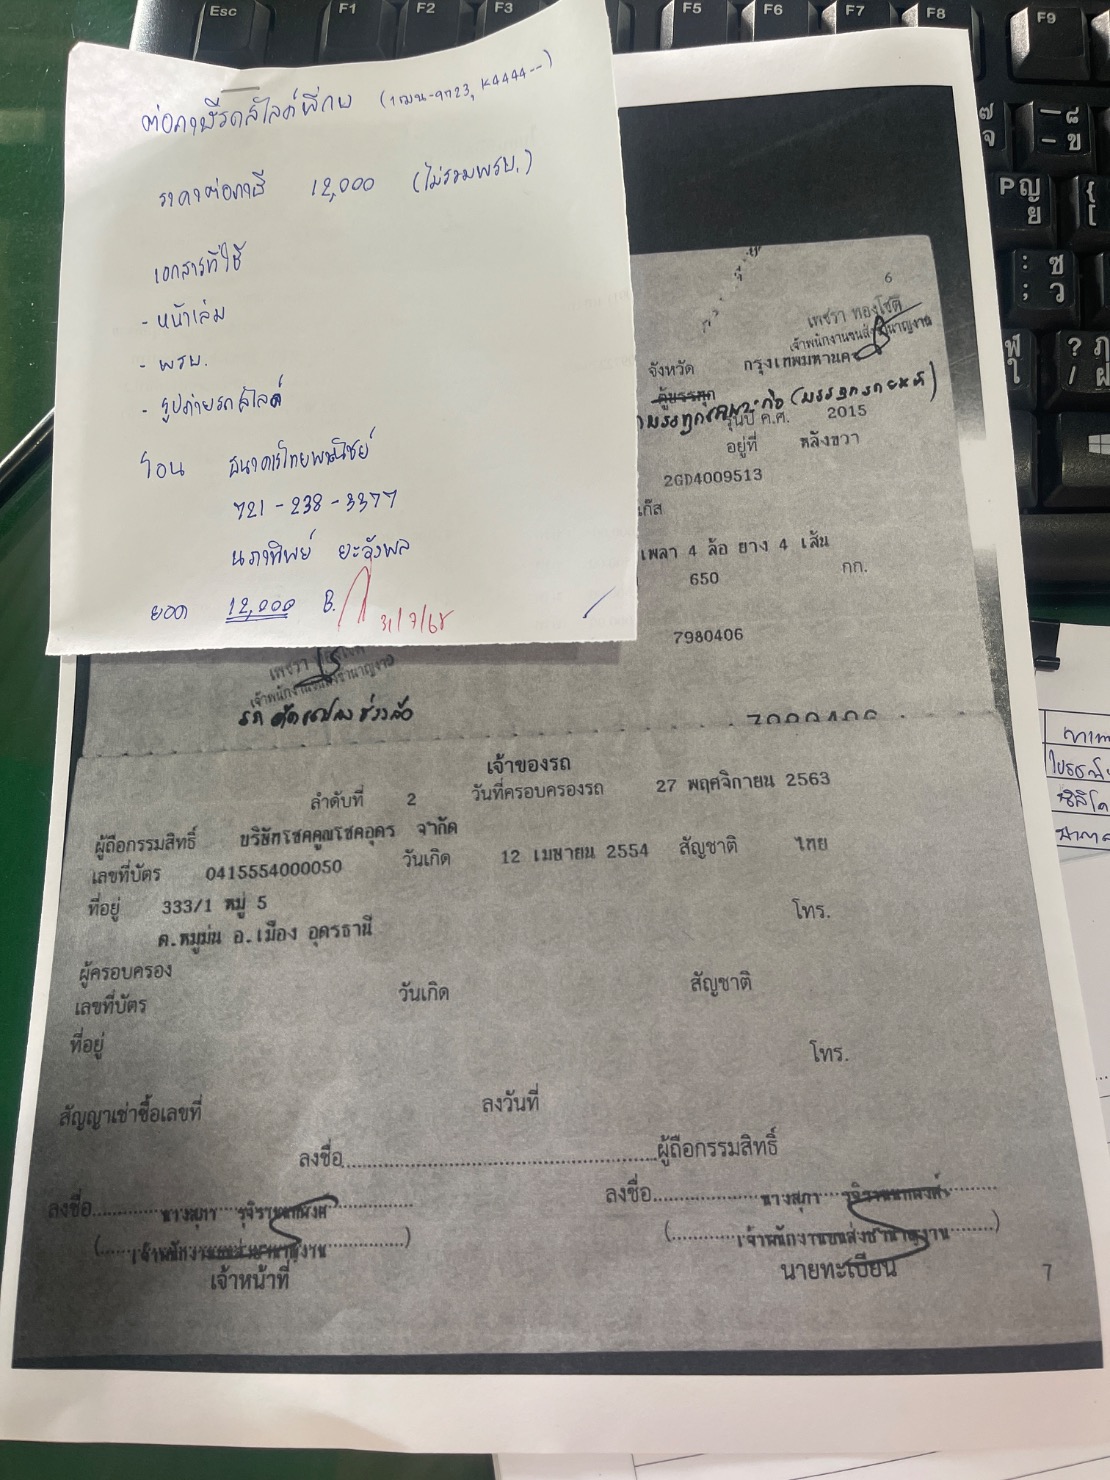 ต่อภาษีรถสไลด์พี่ภพ (1ฒน-9723, K4444--)
ราคาต่อภาษี 12,000 (ไม่รวมพรบ.)
เอกสารที่ใช้
- หน้าเล่ม
- พรบ.
- รูปถ่ายรถสไลด์
โอน ธนาคารไทยพาณิชย์
721-238-3377
นภาทิพย์ ยะจังพล
ยอด 12,000 B.
31/7/68
6
เพชรา ทองโชติ
เจ้าพนักงานขนส่งชำนาญงาน
จังหวัด กรุงเทพมหานคร
ตู้บรรทุก
(บรรทุกรถยนต์)
รุ่นปี ค.ศ. 2015
อยู่ที่ หลังขวา
2GD4009513
เพลา 4 ล้อ ยาง 4 เส้น
650 กก.
7980406
เพชรา
เจ้าพนักงานขนส่งชำนาญงาน
รถดัดแปลงช่วงล้อ
7980406
เจ้าของรถ
ลำดับที่ 2 วันที่ครอบครองรถ 27 พฤศจิกายน 2563
ผู้ถือกรรมสิทธิ์ บริษัทโชคคูณโชคอุดร จำกัด
เลขที่บัตร 0415554000050 วันเกิด 12 เมษายน 2554 สัญชาติ ไทย
ที่อยู่ 333/1 หมู่ 5 โทร.
ต.หมูม่น อ.เมือง อุดรธานี
ผู้ครอบครอง
เลขที่บัตร วันเกิด สัญชาติ
ที่อยู่ โทร.
สัญญาเช่าซื้อเลขที่ ลงวันที่
ลงชื่อ..........ผู้ถือกรรมสิทธิ์
ลงชื่อ..........นางสุภา ลงชื่อ..........นางสุภา
(เจ้าพนักงานขนส่งชำนาญงาน) (เจ้าพนักงานขนส่งชำนาญงาน)
เจ้าหน้าที่ นายทะเบียน
7